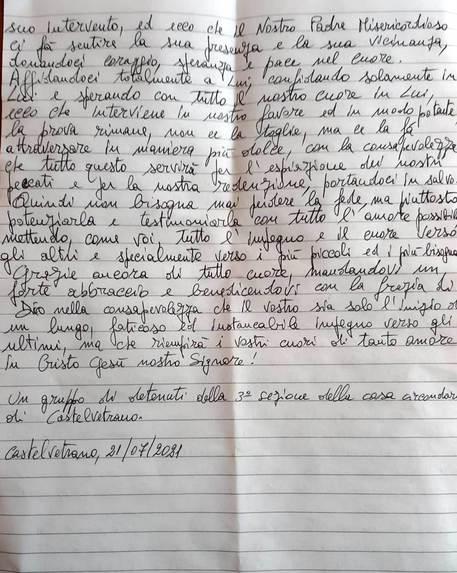 suo intervento, ed ecco che il Nostro Padre Misericordioso
ci fa sentire la sua presenza e la sua vicinanza,
donandoci coraggio, speranza e pace nel cuore.
Affidandoci totalmente a Lui, confidando solamente in
Lui e sperando con tutto il nostro cuore in Lui,
ecco che interviene in nostro favore ed in modo potente
la prova rimane, non ce la toglie, ma ce la fa
attraversare in maniera più dolce, con la consapevolezza
che tutto questo servirà per l'espiazione dei nostri
peccati e per la nostra redenzione, portandoci in salvo.
Quindi non bisogna mai perdere la fede, ma piuttosto
potenziarla e testimoniarla con tutto l'amore possibile
mettendo, come voi, tutto l'impegno e il cuore verso
gli altri e specialmente verso i più piccoli ed i più bisogno
Grazie ancora di tutto cuore, mandandovi un
forte abbraccio e benedicendovi con la grazia di
Dio nella consapevolezza che il vostro sia solo l'inizio di
un lungo, faticoso ed instancabile impegno verso gli
ultimi, ma che riempirà i vostri cuori di tanto amore
In Cristo Gesù nostro Signore!
Un gruppo di detenuti della 3ª sezione della casa circondar
di Castelvetrano.
Castelvetrano, 21/07/2021